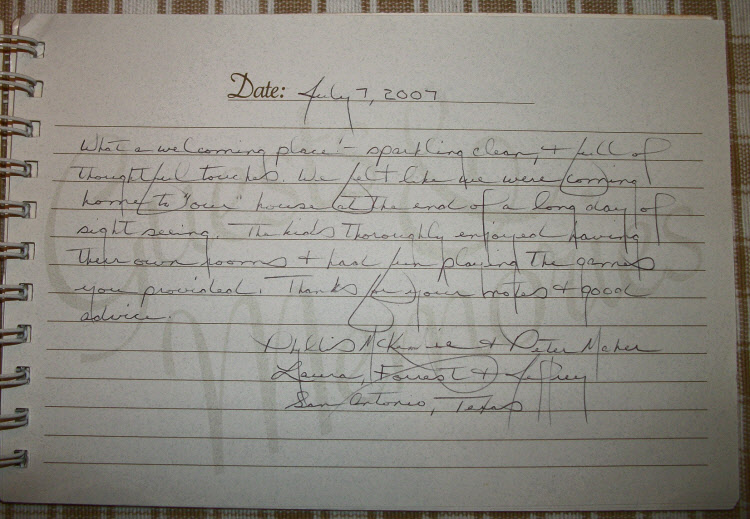 Date: July 7, 2007
What a welcoming place! - sparkling clean, & full of
thoughtful touches. We felt like we were coming
home to "our" house at the end of a long day of
sight seeing. The kids thoroughly enjoyed having
their own rooms & had fun playing the games
you provided. Thanks for your notes & good
advice.
Phyllis McKenzie & Peter Maher
Laura, Forrest & Jeffrey
San Antonio, Texas
Guest
Memories